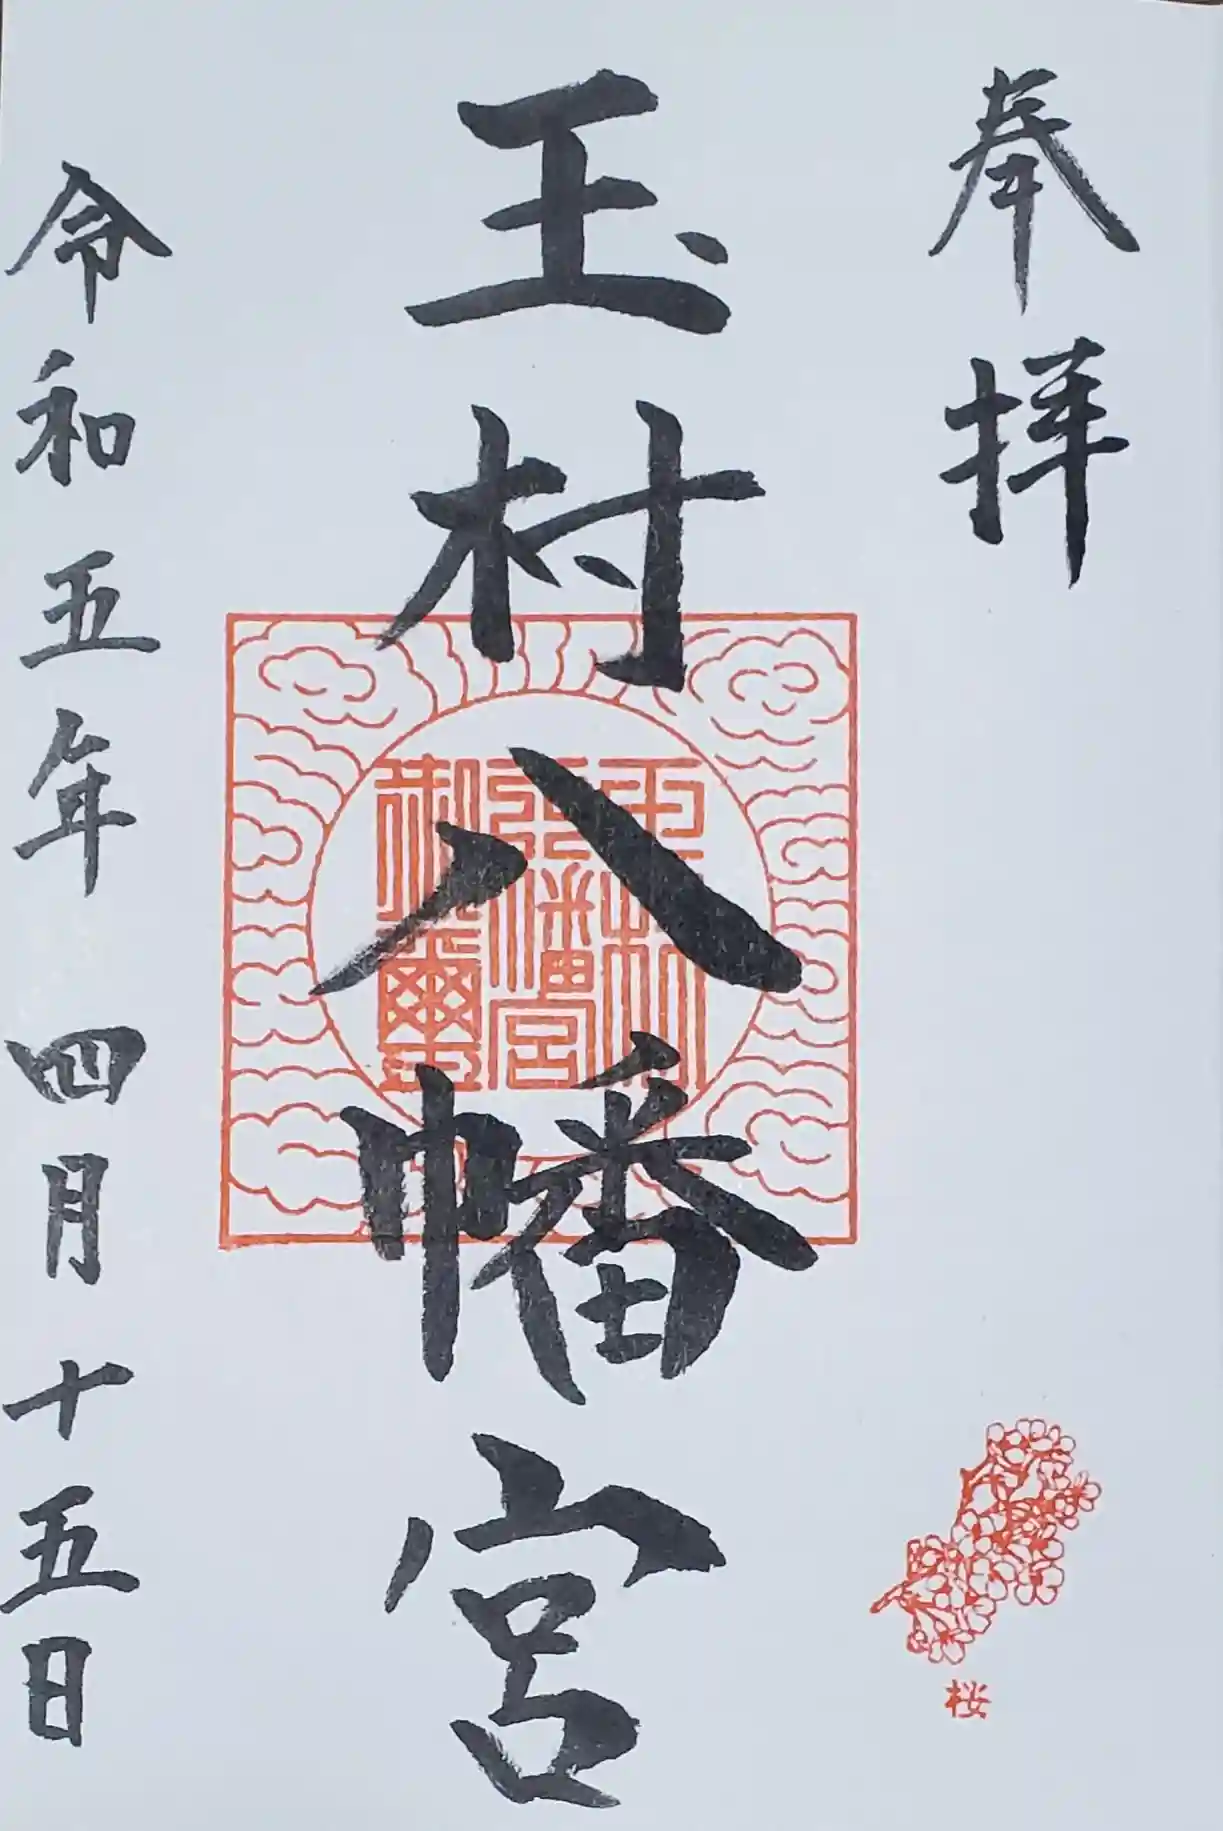 奉拝
玉村八幡宮
玉村
八幡宮
御璽
令和五年四月十五日
桜